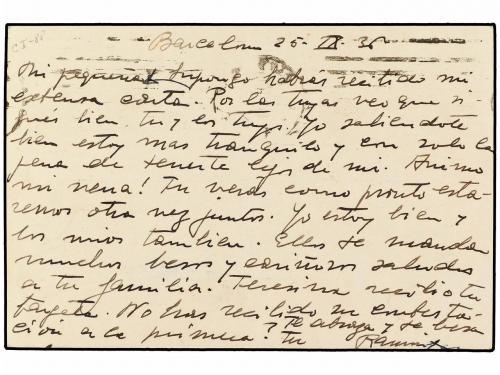 CJ-88
Barcelona 25-IX-36
Mi pequeña: Supongo habras recibido mi
extensa carta. Por las tuyas veo que si-
gues bien tu y los tuyos. Yo sabiendote
bien estoy mas tranquilo y con solo la
pena de tenerte lejos de mi. Animo
mi nena! Tu veras como pronto esta-
remos otra vez juntos. Yo estoy bien y
los mios tambien. Ellos te mandan
muchos besos y cariñosos saludos
a tu familia. Teresina recibio tu
targeta. No has recibido su contesta-
cion a la primera? Te abraza y te besa
tu Ramon